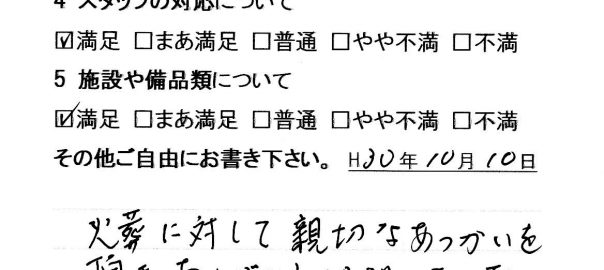 4 スタッフの対応について
☑満足 □まあ満足 □普通 □やや不満 □不満
5 施設や備品類について
☑満足 □まあ満足 □普通 □やや不満 □不満
その他ご自由にお書き下さい。 H30年10月10日
火葬に対して親切なあつかいを